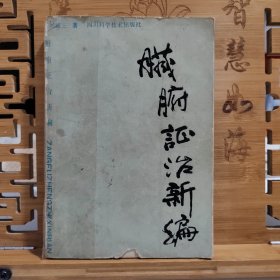 著 四川科学技术出版社
臟腑証治新編
ZANGFUZHENGZHIXINBIAN
智慧如海